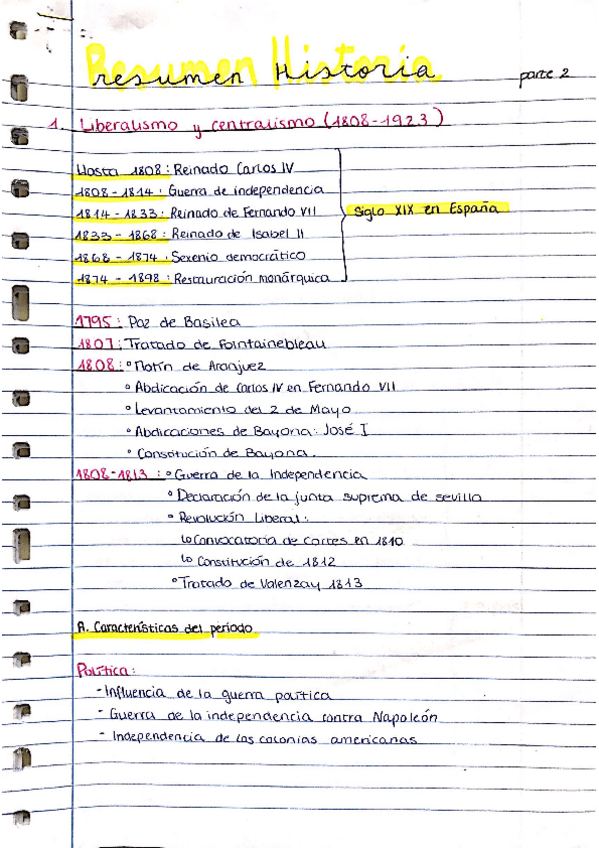 Resumen Historia
resumen Historia parte 2
1. Liberalismo y centralismo (1808-1923)
Hasta 1808: Reinado Carlos IV
1808-1814: Guerra de independencia
1814-1833: Reinado de Fernando VII
Siglo XIX en España
1833-1868: Reinado de Isabel II
1868-1874: Sexenio democrático
1874-1898: Restauración monárquica
1795: Paz de Basilea
1807: Tratado de Fointainebleau
1808: ° Motín de Aranjuez
° Abdicación de Carlos IV en Fernando VII
° Levantamiento del 2 de Mayo
° Abdicaciones de Bayona: José I
° Constitución de Bayona.
1808-1813: ° Guerra de la Independencia
° Declaración de la junta suprema de sevilla
° Revolución Liberal:
↳ Convocatoria de cortes en 1810
↳ Constitución de 1812
° Tratado de Valenzay 1813
A. Características del periodo
Política:
- Influencia de la guerra política
- Guerra de la independencia contra Napoleón
- Independencia de las colonias americanas